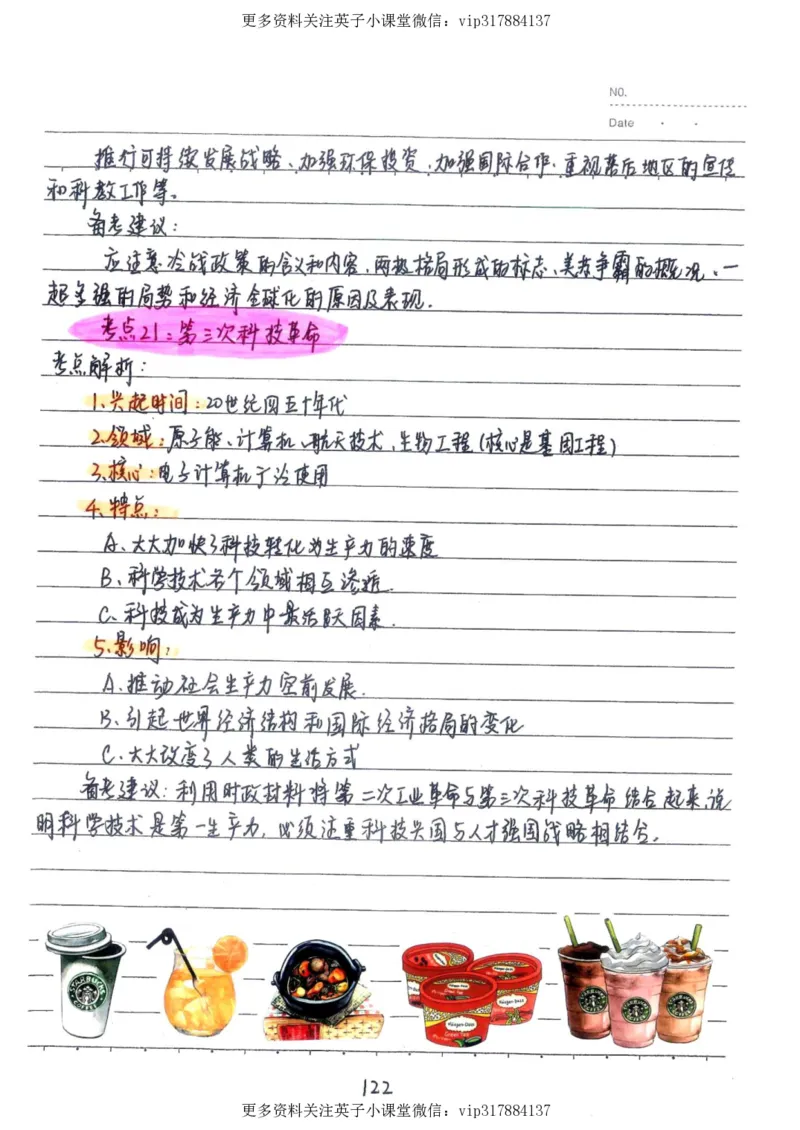 更多资料关注英子小课堂微信：vip317884137
NO.
Date
推行可持续发展战略、加强环保投资、加强国际合作、重视落后地区的宣传
和科教工作等。
备考建议：
应注意冷战政策的含义和内容、两极格局形成的标志、美苏争霸的概况、一
超多强的局势和经济全球化的原因及表现.
考点21：第三次科技革命
考点解析：
1、兴起时间：20世纪四五十年代
2、领域：原子能、计算机、航天技术、生物工程(核心是基因工程)
3、核心：电子计算机广泛使用
4、特点：
A、大大加快了科技转化为生产力的速度
B、科学技术各个领域相互渗透.
C、科技成为生产力中最活跃因素.
5、影响：
A、推动社会生产力空前发展.
B、引起世界经济结构和国际经济格局的变化
C、大大改变了人类的生活方式
备考建议：利用时政材料将第二次工业革命与第三次科技革命结合起来，说
明科学技术是第一生产力，必须注重科技兴国与人才强国战略相结合。
STARBUCKS COFFEE
Häagen-Dazs
Häagen-Dazs
Häagen-Dazs
Green Tea
122
更多资料关注英子小课堂微信：vip317884137